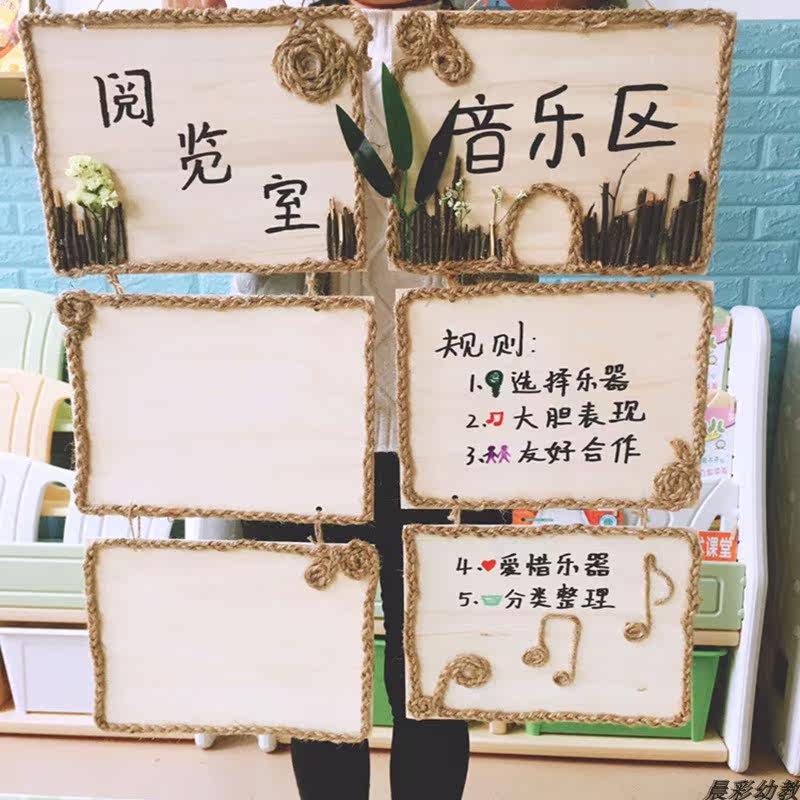 阅览室
音乐区
规则:
1.选择乐器
2.大胆表现
3.友好合作
4.爱惜乐器
5.分类整理
课堂
晨彩幼教